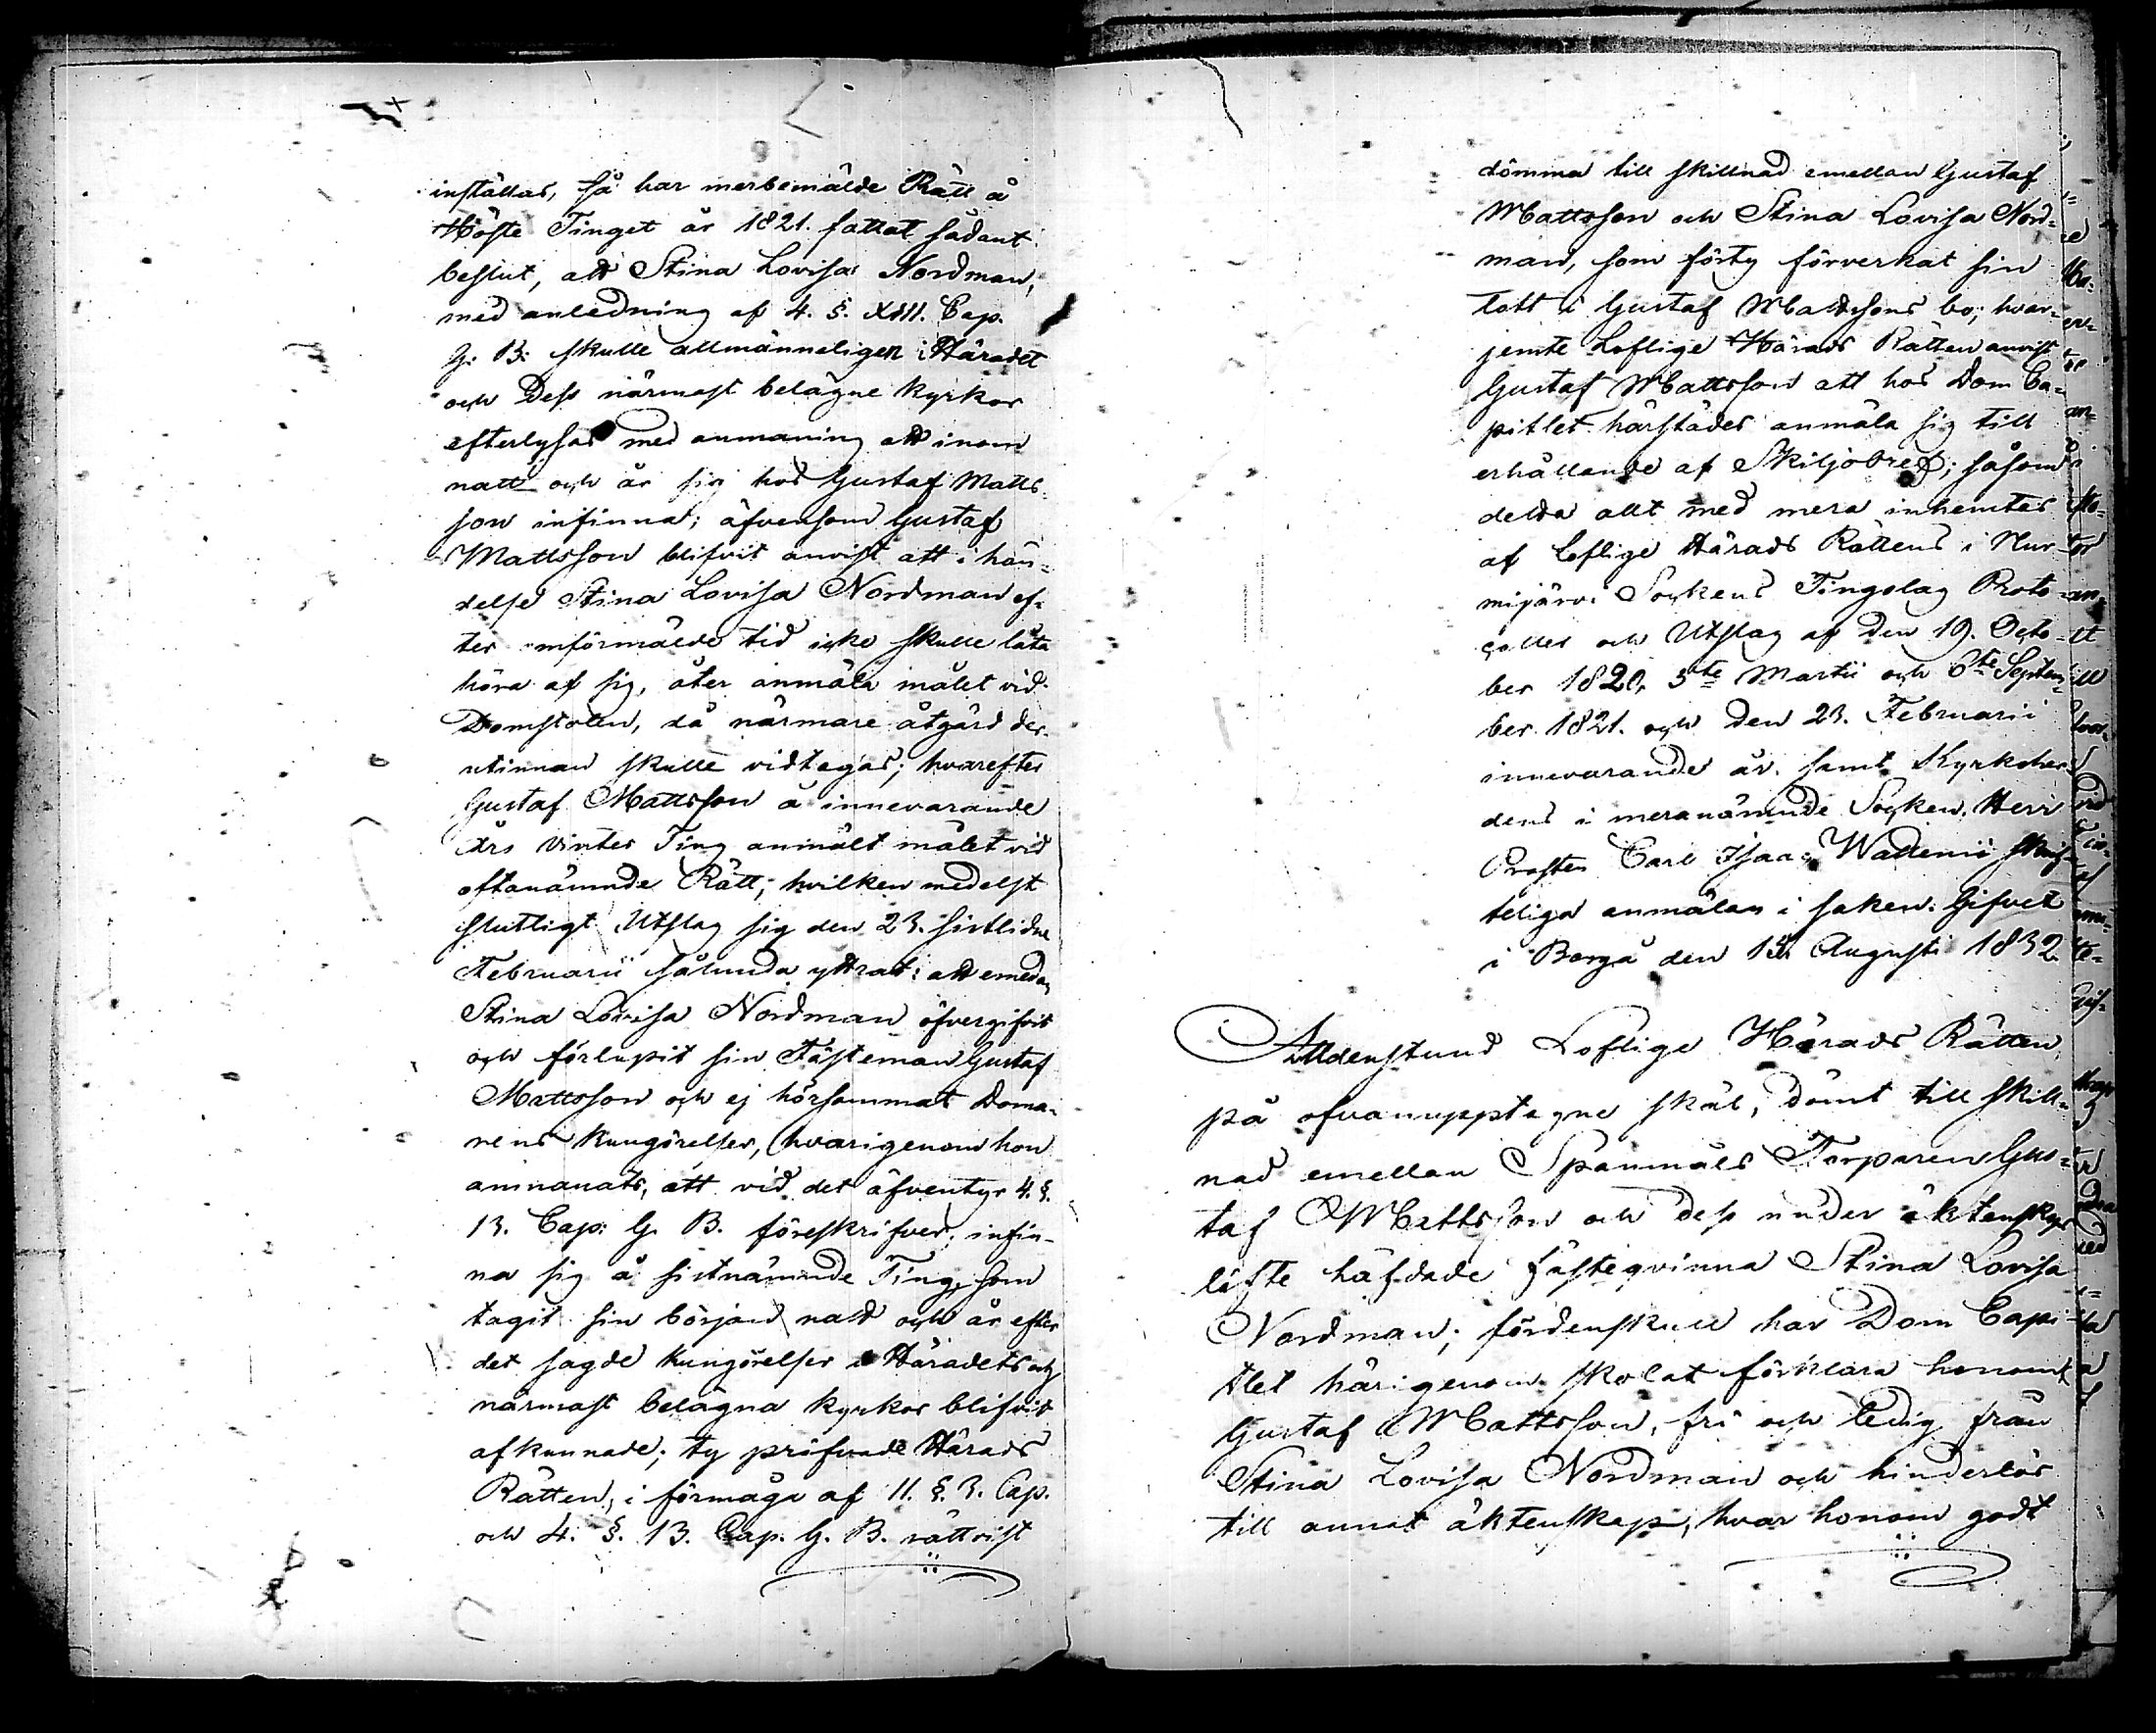 inställas, så har merbemälde Rätt å
Höste Tinget år 1821. fattat sådant
beslut, att Stina Lovisa Nordman,
med anledning af 4. §. XIII. Cap.
G. B. skulle allmänneligen i Häradet
och Dess närmast belägne Kyrkor
efterlysas med anmaning att inom
natt och år sig hos Gustaf Matts-
son infinna; äfvensom Gustaf
Mattsson blifvit anvist att i hän-
delse Stina Lovisa Nordman ef-
ter omförmälde tid icke skulle låta
höra af sig, åter anmäla målet vid
Domstolen, då närmare åtgärd der-
utinnan skulle vidtagas; hvarefter
Gustaf Mattsson å innevarande
års Vinter Ting anmält målet vid
oftanämnde Rätt; hvilken medelst
slutligt Utslag sig den 23. sistlidne
Februarii sålunda yttrat: att emedan
Stina Lovisa Nordman öfvergifvit
och förlupit sin Fästeman Gustaf
Mattsson och ej hörsammat Doma-
rens kungörelser, hvarigenom hon
anmanats, att vid det äfventyr 4. §.
13. Cap: G. B. föreskrifver, infin-
na sig å sistnämnde Ting, som
tagit sin början natt och år efter
det sagde kungörelser i Häradets och
närmast belägna kyrkor blifvit
afkunnade; ty pröfvade Härads
Rätten, i förmåga af 11. §. 3. Cap.
och 4. §. 13. Cap. G. B. rättvist
dömma till skillnad emellan Gustaf
Mattsson och Stina Lovisa Nord-
man, som förty förverkat sin
lott i Gustaf Mattssons bo; hvar-
jemte Loflige Härads Rätten anvist
Gustaf Mattsson att hos Dom Ca-
pitlet härstädes anmäla sig till
erhållande af Skiljobref; såsom
detta allt med mera inhemtes
af Loflige Härads Rättens i Nur-
mijärvi Sockens Tingslag Proto-
coller och Utslag af den 19. Octo-
ber 1820, 5te Martii och 6te Septem-
ber 1821. och den 23. Februarii
innevarande år. samt Kyrkoher-
dens i meranämnde Socken, Herr
Prosten Carl Isaac Wallenii skrif-
teliga anmälan i saken. Gifvet
i Borgå den Augusti 1832.
Alldenstund Loflige Härads Rätten,
på ofvanupptagne skäl, dömt till skill-
nad emellan Spånmåls Torparen Gus-
taf Mattsson och dess under äktenskaps
löfte häfdade fästeqvinna Stina Lovisa
Nordman; fördenskull har Dom Capi-
tlet härigenom skolat förklara honom
Gustaf Mattsson, fri och ledig från
Stina Lovisa Nordman och hinderlös
till annat äktenskap, hvar honom godt